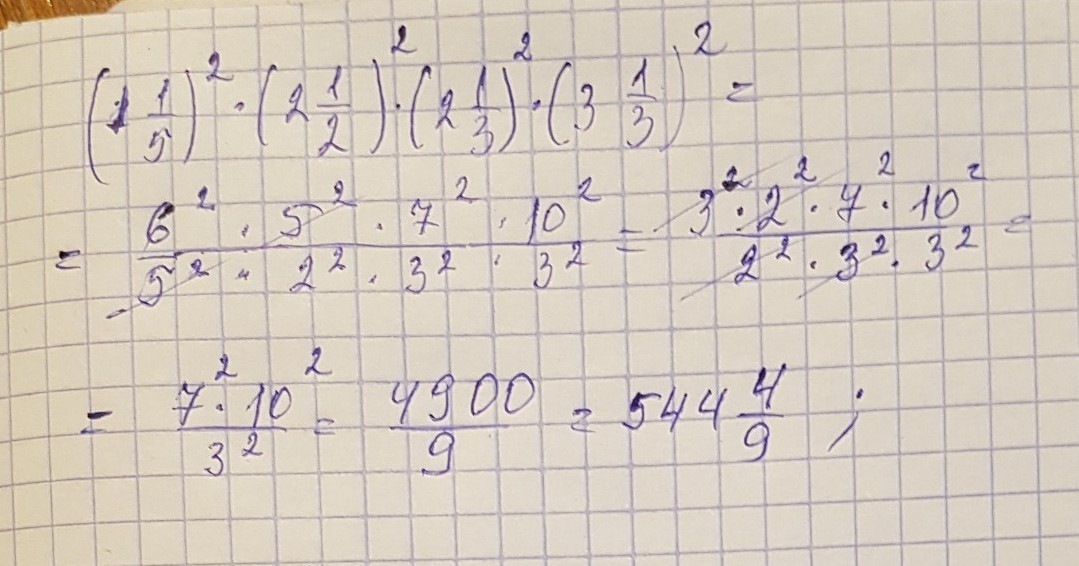 (1 1/5)² · (2 1/2)² · (2 1/3)² · (3 1/3)² =
= 6² · 5² · 7² · 10² / 5² · 2² · 3² · 3² = 3² · 2² · 7² · 10² / 2² · 3² · 3² =
= 7² · 10² / 3² = 4900/9 = 544 4/9 ;